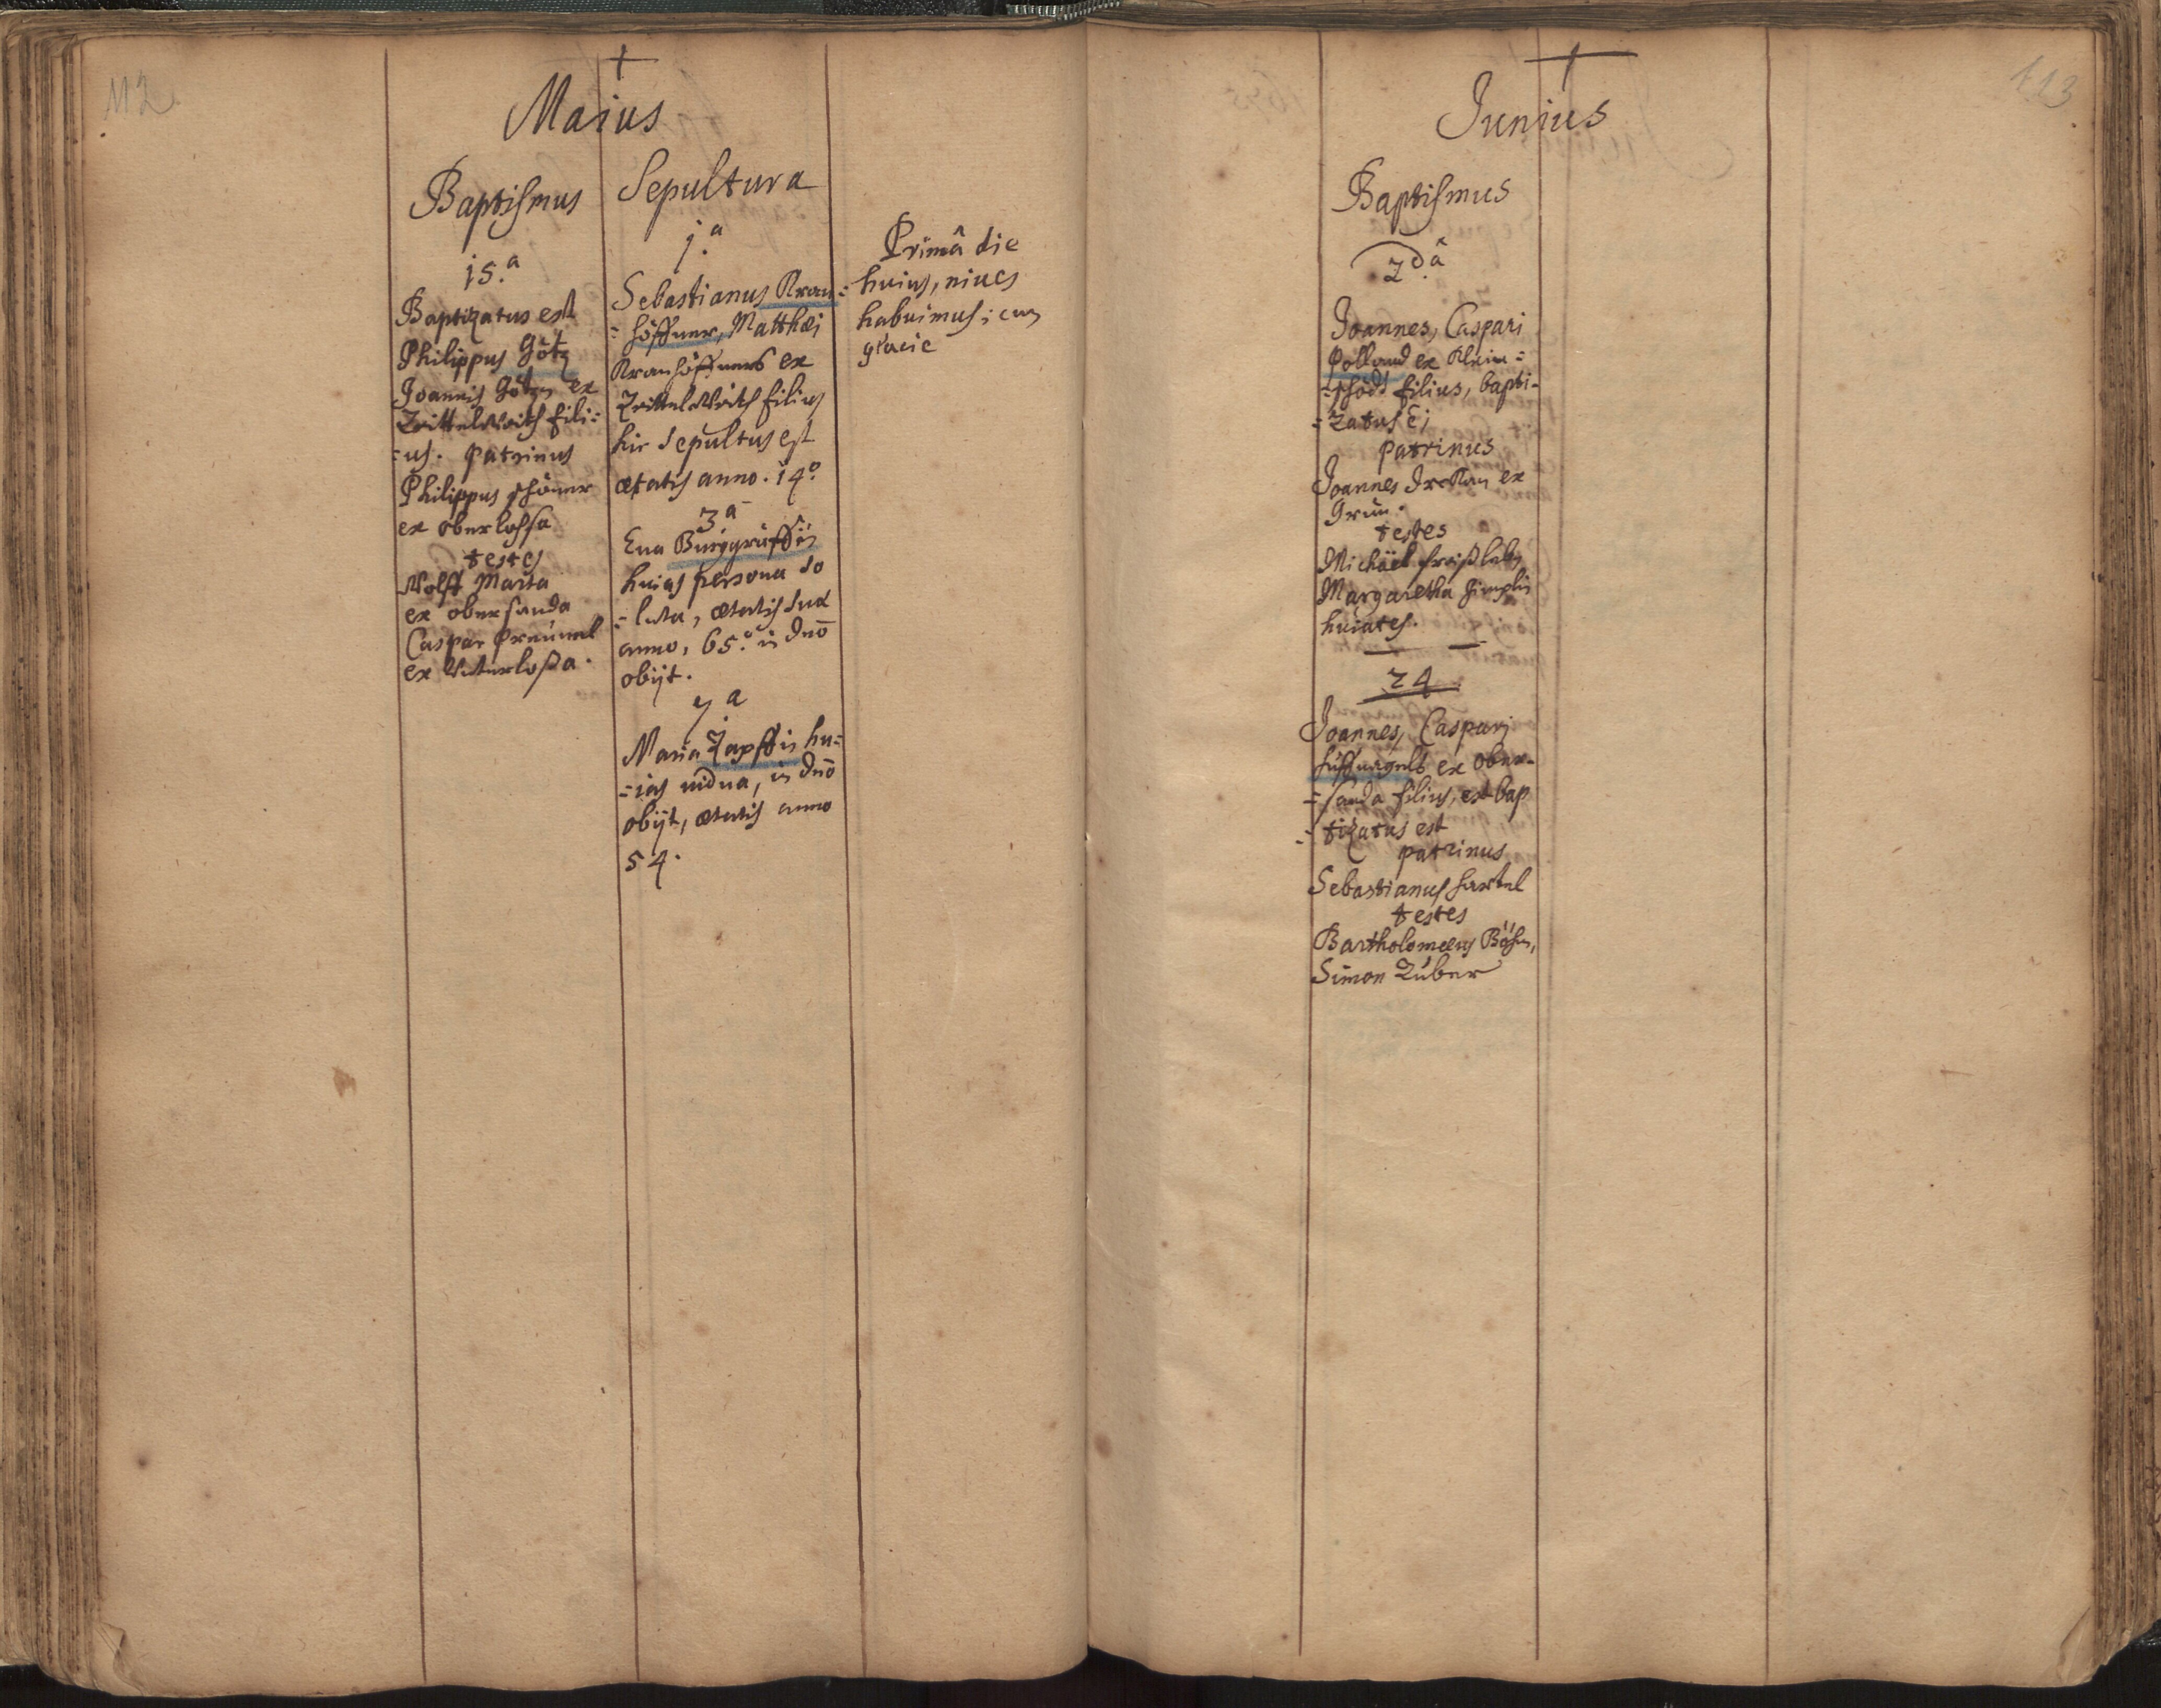 112
Maius
Baptismus
15.a
Baptizatus est
Philippus Götz
Joannis Götzn ex
Zrittelwitsh fili=
=us. Patrinus
Philippus Schöner
ex oberlossa
testes
Wolff
ex obersanda
Caspar
ex Unterlossa.
Sepultura
j.a
Sebastianus Kran=
=höffner, Matthæi
Kranhöffners ex
filius
hic sepultus est
ætatis anno. 14.o
3a
Eva Burggräffin
huias persona so
=luta, ætatis suæ
anno, 65.o in Dnō
obijt.
7.a
Maria Zapffin hu=
=ias vidua, in Dnō
obijt, ætatis anno
54.
Primâ die
huius, niues
habuimus; cum
glacie
113
Junius
Baptismus
2d.â
Joannes, Caspari
Polland ex Klein=
=schödl filius, bapti-
=zatus ē;
Patrinus
Joannes ex
Grün.
testes
Michäel
Margaretha
huiates.
24
Joannes, Caspari
ex Ober-
=sanda filius, est bap
=tizatus est
patrinus
Sebastianus Hartel
testes
Bartholomeus Böhm,
Simon Zuber